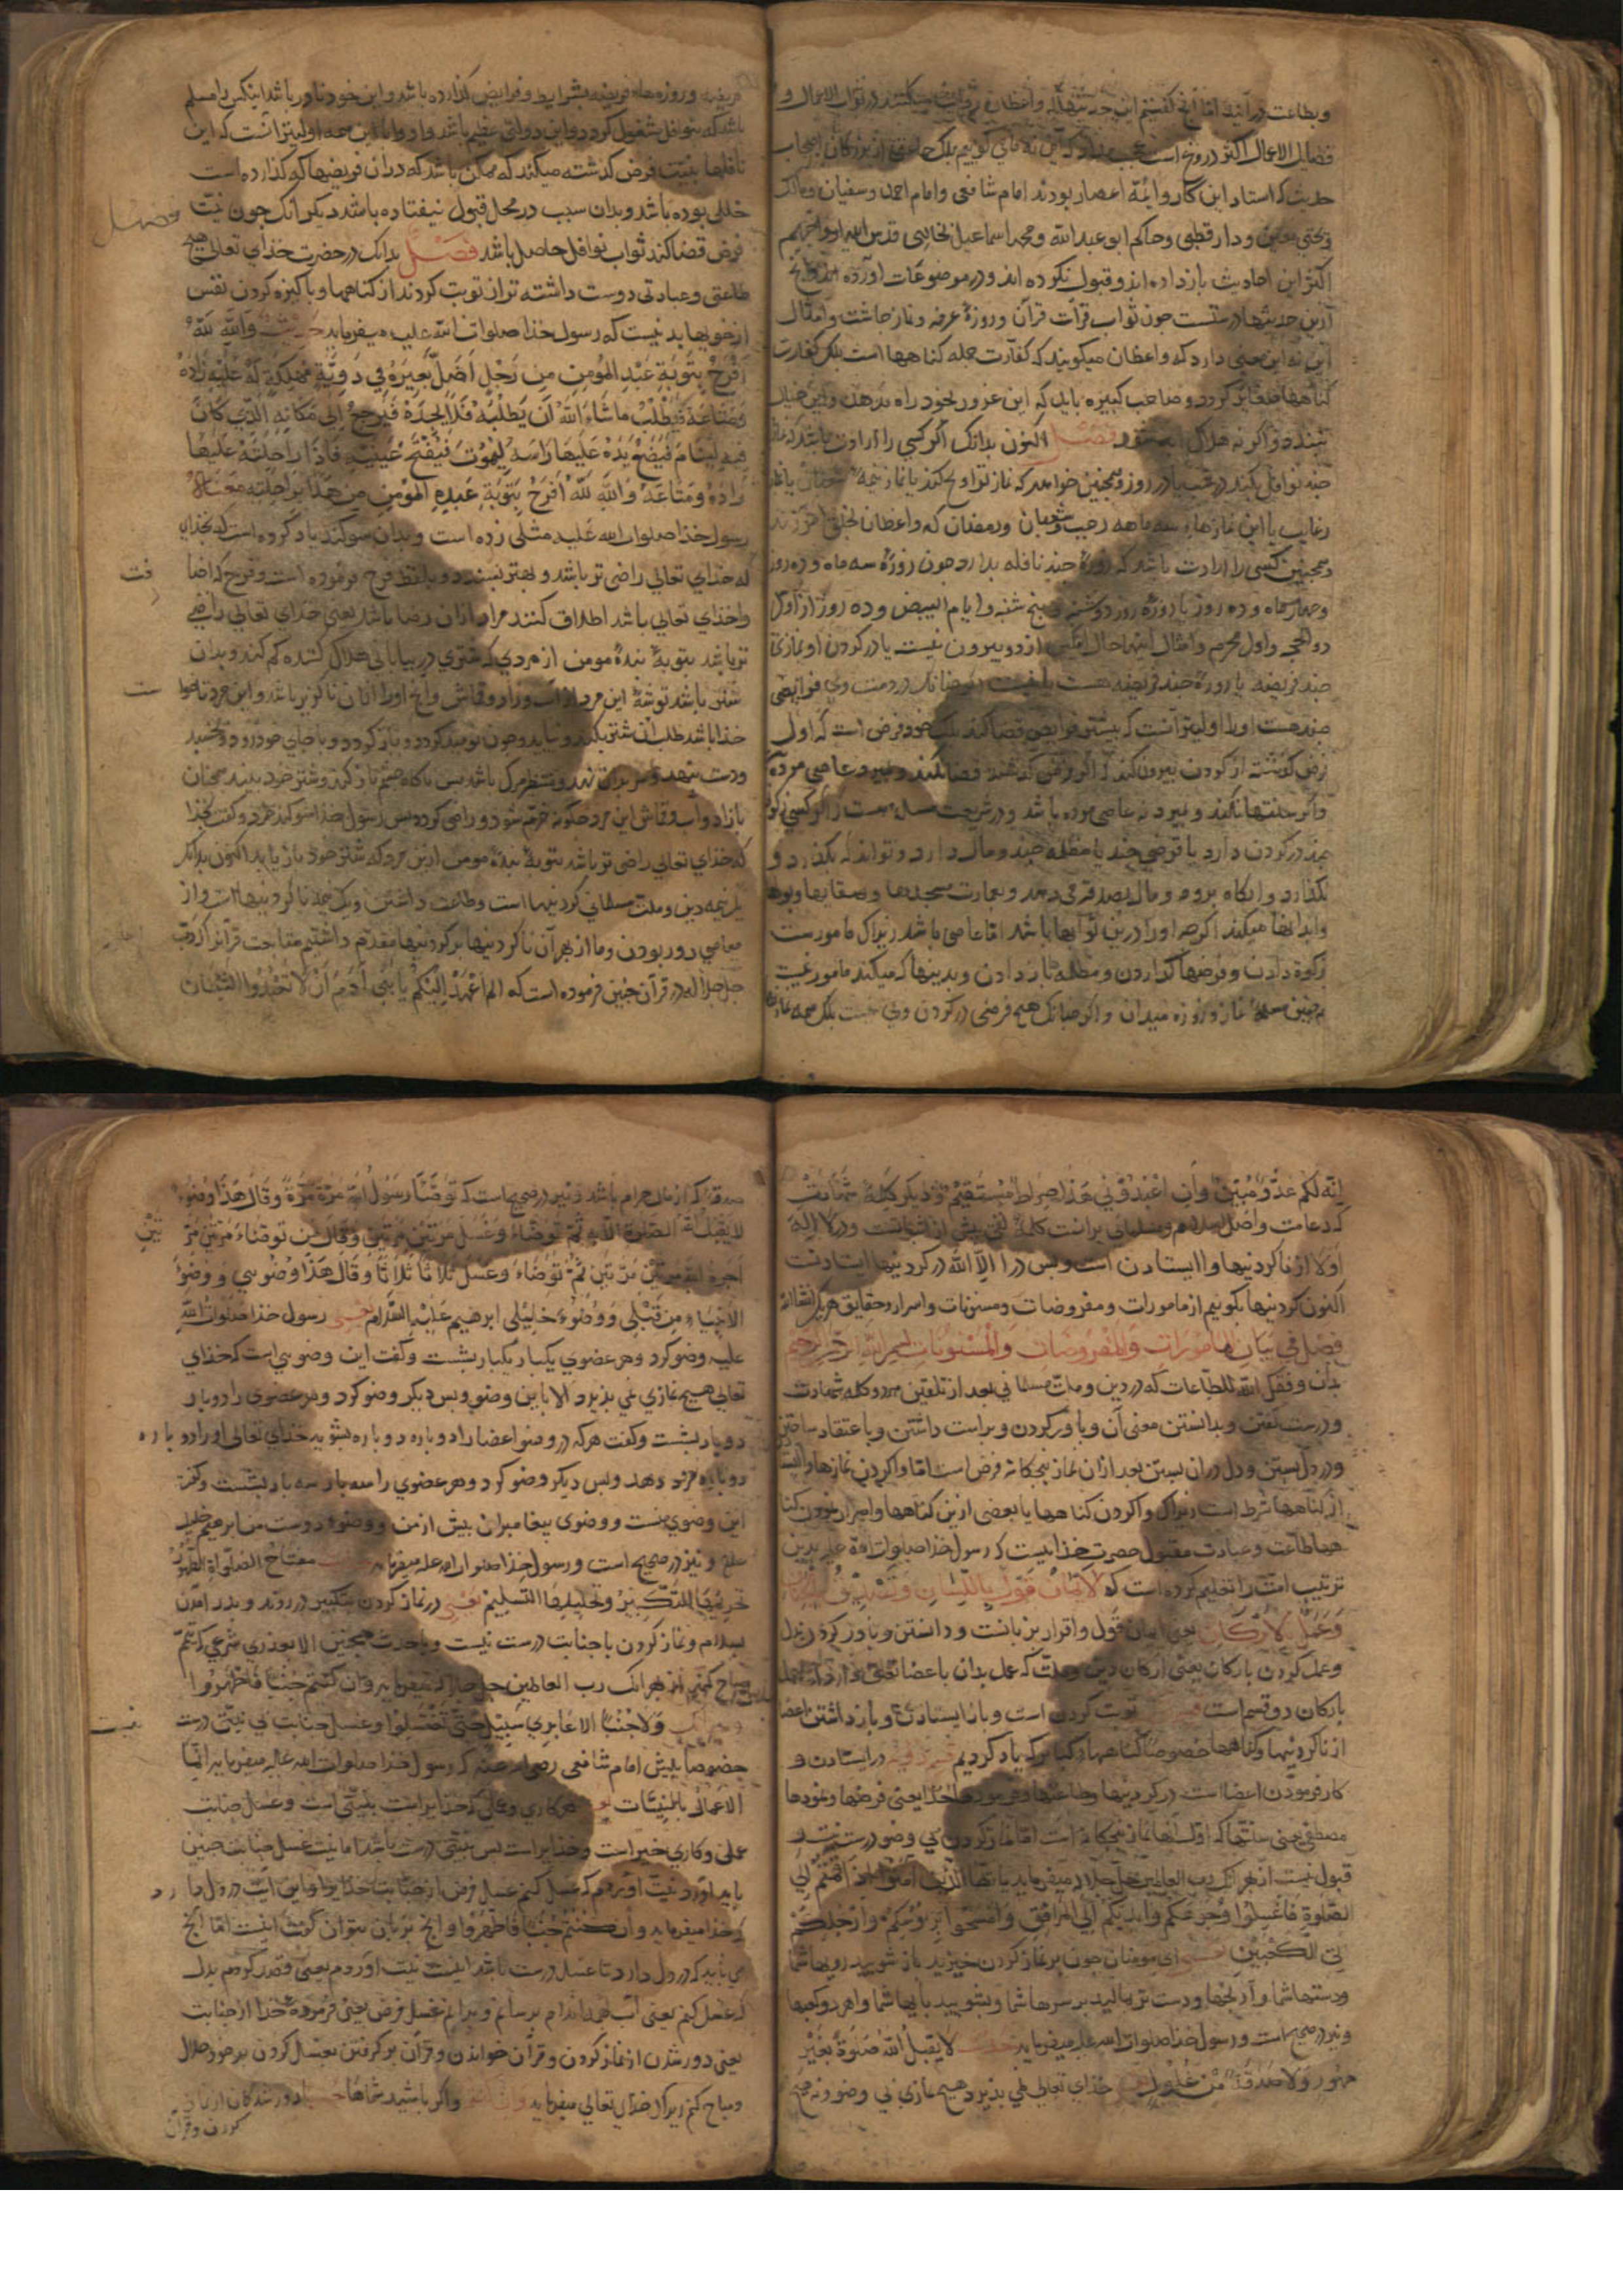 وبطاعت درآیند اما آنچ گفتیم این جه
فضایل الاعمال اکثر دروغ است که این نه مای کوییم بلک از بزرکان اصحاب
حدیث که استاد این کار وائمه اعصار بودند امام شافعی وامام احمد وسفیان ومالک
ویحیی معین ودار قطنی وحاکم ابو عبدالله ومحمد اسماعیل بخاری قدس الله ارواحهم
اکثر این احادیث باز داده اند وقبول نکرده اند ودر موضوعات آورده اند وانچ
ازین حدیثها درستست جون ثواب قرآت قرآن وروزهٔ عرفه ونماز جاشت وامثال
این نه این معنی دارد که واعظان میکویند که کفارت جمله کناهها است بلک کفارت
کناهها صغایر کردد وصاحب کبیره باید که این غرور بخود راه ندهد واین خیال
نبندد واکرنه هلاک فصل اکنون بدانک اکر کسی را ارادت باشد که نماز
جند نوافل بکند در شب یا در روز وهمجنین خواهد که نماز تراویح کند یا نماز نیمهٔ شعبان یا نماز
رغایب یا این نمازهاء سه ماهه رجب وشعبان ورمضان که واعظان بخلق آموزند
وهمجنین کسی را ارادت باشد که روزهٔ جند نافله بدارد جون روزهٔ سه ماه وده روز
وجهار ماه وده روز یا روزهٔ روز دوشنبه وپنج شنبه وایام البیض وده روز از اول
ذوالحجه واول محرم وامثال اینها حال این کس از دو بیرون نیست یا در کردن او نماز
جند فریضه یا روزهٔ جند فریضه هست یا نیست در ذمت وی فرایضی
جند هست اورا اولیتر آنست که بیشتر فرایض قضا کند بلک خود فرض است که اول
فرض کذشته از کردن بیرون کند که اکر فرض کذشته قضا نکند ومیرد عاصی مرده
واکر سنتها نکند ومیرد نه عاصی مرده باشد ودر شریعت مسله هست که اکر کسی زکوة
جند در کردن دارد یا قرضی جند یا مظلمه جند ومال دارد وتواند که بکذارد و
نکذارد وانکاه برود ومال بصدقه می دهد وبعمارت مسجدها وسقابها وپولها
وامثالها میکند اکرجه اورا درین ثوابها باشد اما عاصی باشد زیراک مامورست
زکوة دادن وقرضها کذاردن ومظلمه باز دادن وبدینها که میکند مامور نیست
همجنین مسلهٔ نماز وروزه میدان واکر جنانک هیج فرضی در کردن وی نیست بلک همه نماز
فریضه وروزه ماه فریضه بشرایط وفرایض کزارده باشد واین خود نادر باشد اینکس را مسلم
باشد که بنوافل مشغول کردد واین دولتی عظیم باشد واورا با این همه اولیتر آنست که این
نافلها بنیت فرض کذشته میکند که ممکن باشد که در آن فریضها که کذارده است
خللی بوده باشد وبدان سبب در محل قبول نیفتاده باشد دیکر انک جون نیت
فصل
فرض قضا کند ثواب نوافل حاصل باشد فصل بدانک در حضرت خدای تعالی هیج
طاعتی وعبادتی دوست داشته تر از توبت کردند از کناهها وپاکیزه کردن نفس
از خویها بد نیست که رسول خذا صلوات الله علیه میفرماید حدیث والله لله
أفرح بتوبة عبد المؤمن من رجل أضل بعیره فی دویة مهلکة له علیه زاده
ومتاعه فیطلب ما شاء الله ان یطلبه فلا یجده فیرجع الی مکانه الذی کان
فیه لینام فیضع یده علیها راسه لیموت فیفتح عینیه فاذا راحلته علیها
زاده ومتاعه والله لله أفرح بتوبة عبده المؤمن من هذا براحلته معناه
رسول خذا صلوات الله علیه مثلی زده است وبدان سوکند یاد کرده است که بخدای
که خذای تعالی راضی تر باشد وبهتر بسندد وبلفظ فرح فرموده است وفرح که اضافت
واخذای تعالی باشد اطلاق کنند مراد ازان رضا باشد یعنی خذای تعالی راضی
تر باشد بتوبهٔ بندهٔ مومن از مردی که شتری در بیابانی هلاک کننده کم کند وبدان
شتر باشد توشهٔ این مرد از آب وزاد وقماش وانج اورا ازان ناکزیر باشد واین مرد تا خواست
خذا باشد طلب آن شتر بکند ونیابد وجون نومید کردد وباز کردد وبا جای خود رود وبخسبد
ودست بنهد وسر بران نهد ومنتظر مرک باشد پس ناکاه جشم باز کند وشتر خود بیند همجنان
با زاد وآب وقماش این مرد جکونه خرم شود وراضی کردد پس رسول خذا سوکند خورد وکفت بخذا
که خذای تعالی راضی تر باشد بتوبهٔ بندهٔ مومن ازین مرد که شتر خود باز یابد اکنون بدانک
یک نیمه دین وملت مسلمانی کردنیها است وطاعت داشتن ویک نیمه ناکردنیها است واز
معاصی دور بودن وما از بهر آن ناکردنیها بر کردنیها مقدم داشتیم متابعت قرآنرا که رب
جل جلاله در قرآن جنین فرموده است که الم اعهد الیکم یا بنی آدم ان لا تعبدوا الشیطان
انه لکم عدو مبین وان اعبدونی هذا صراط مستقیم ودیکر کلمهٔ شهادت
که دعامت واصل اسلام ومسلمانی برانست کلمهٔ نفی پیش از اثباتست ودر لا اله
اولا از ناکردنیها وا ایستادن است وپس در الا الله در کردنیها ایستادنست
اکنون کردنیها بکوییم از مامورات ومفروضات ومسنونات واسرار وحقایق هریک انشاالله
فصل فی بیان المأمورات والمفروضات والمسنونات بسم الله الرحمن الرحیم
بدان وفقک الله للطاعات که در دین وملت مسلمانی بعد از تلقین هر دو کلمه شهادت
ودرست کفتن وبدانستن معنی آن وباور کردن وبراست داشتن وبا اعتقاد ساختن
ودر دل بستن ودل در ان بستن بعد ازان نماز پنجکانه فرض است اما واکردن نمازها وا ایستادن
از کناهها شرط است زیراک واکردن کناهها یا بعضی ازین کناهها واصرار نمودن
همه طاعت وعبادت مقبول حضرت خذا نیست که رسول خذا صلوات الله علیه بدین
ترتیب امت را تعلیم کرده است که الایمان قول باللسان وتصدیق بالجنان
وعمل بالارکان یعنی ایمان قول واقرار بزبانست ودانستن وباور کردن بدل
وعمل کردن بارکان یعنی ارکان دین وملت که عمل بدان باعضا تعلق دارد
بارکان دو قسم است توبت کردن است وباز ایستادن وباز داشتن اعضا
از ناکردنیها وکناهها خصوصا کناهها کبایر که یاد کردیم قسم دوم در ایستادن و
کار فرمودن اعضا است در کردنیها وطاعتها وفرمودها خذا یعنی فرضها ونمودها
مصطفی یعنی سنتها که اول انها نماز پنجکانه است اما نماز کردن بی وضو درست نیست و
قبول نیست از بهر آنک رب العالمین جل جلاله میفرماید یا ایها الذین آمنوا اذا قمتم الی
الصلوة فاغسلوا وجوهکم وایدیکم الی المرافق وامسحوا برؤسکم وارجلکم
الی الکعبین یعنی ای مومنان جون بر نماز کردن خیزید باز شویید رویها شما
ودستها شما وآرنجها ودست تر بمالید بر سرها شما وبشویید پایها شما واهر دو کعبها
ونیز در صحیح است ورسول خذا صلوات الله علیه میفرماید حدیث لا یقبل الله صلوة بغیر
طهور ولا صدقة من غلول یعنی خذای تعالی نمی پذیرد هیج نمازی بی وضو ونه هیج
صدقه که از مال حرام باشد ونیز در صحیح است که توضأ رسول الله مرة مرة وقال هذا وضوء
لا یقبل الله الصلوة الا به ثم توضاء وغسل مرتین مرتین وقال من توضاء مرتین مرتین
اجره الله مرتین مرتین ثم توضاء وغسل ثلاثا ثلاثا وقال هذا وضوئی ووضوء
الانبیاء من قبلی ووضوء خلیلی ابرهیم علیه السلام یعنی رسول خذا صلوات الله
علیه وضو کرد وهر عضوی یکبار یکبار بشست وکفت این وضویی است که خذای
تعالی هیج نمازی نمی پذیرد الا با این وضو وپس دیکر وضو کرد وهر عضوی را دوبار
دوبار بشست وکفت هرکه در وضو اعضا را دوباره دوباره بشوید خذای تعالی اورا دوباره
دوباره مزد دهد وپس دیکر وضو کرد وهر عضوی را سه بار سه بار بشست وکفت
این وضوی منست ووضوی پیغامبران پیش از من ووضوء دوست من ابرهیم خلیل
ونیز در صحیح است ورسول خذا صلوات الله علیه میفرماید مفتاح الصلواة الطهور
تحریمها التکبیر وتحلیلها التسلیم یعنی در نماز کردن بتکبیر در روند وبدر آمدن
بسلام ونماز کردن با جنابت درست نیست وبا حدث همجنین الا بعذری شرعی که تیمم
مباح کنیم از بهر آنک رب العالمین جل جلاله میفرماید وان کنتم جنبا فاطهروا
ولا جنبا الا عابری سبیل حتی تغتسلوا وغسل جنابت بی نیت درست نیست
خصوصا پیش امام شافعی رضی الله عنه که رسول خذا صلوات الله علیه میفرماید انما
الاعمال بالنیات یعنی هر کاری وعملی که خذا یراست بنیتی است وغسل جنابت
عملی وکاری خیر است وخذا یراست پس بنیتی درست باشد اما نیت غسل جنابت جنین
باید آورد نیت آوردم که غسل کنم غسل فرض از جنابت خذای را واین آیت در دل دارد
که خذا میفرماید وان کنتم جنبا فاطهروا وانج بزبان بتوان کفت اینست اما انج
می باید که در دل دارد تا غسل درست باشد اینست نیت آوردم یعنی قصد کردم بدل
که غسل کنم یعنی آب بهمه اندام برسانم وبرانم غسل فرض یعنی فرمودهٔ خذا از جنابت
یعنی دور شدن از نماز کردن وقرآن خواندن وقرآن برکرفتن بغسل کردن برخود حلال
ومباح کنم زیراک خذای تعالی میفرماید واکر باشید شماها دور شدکان از نماز
کردن وقرآن